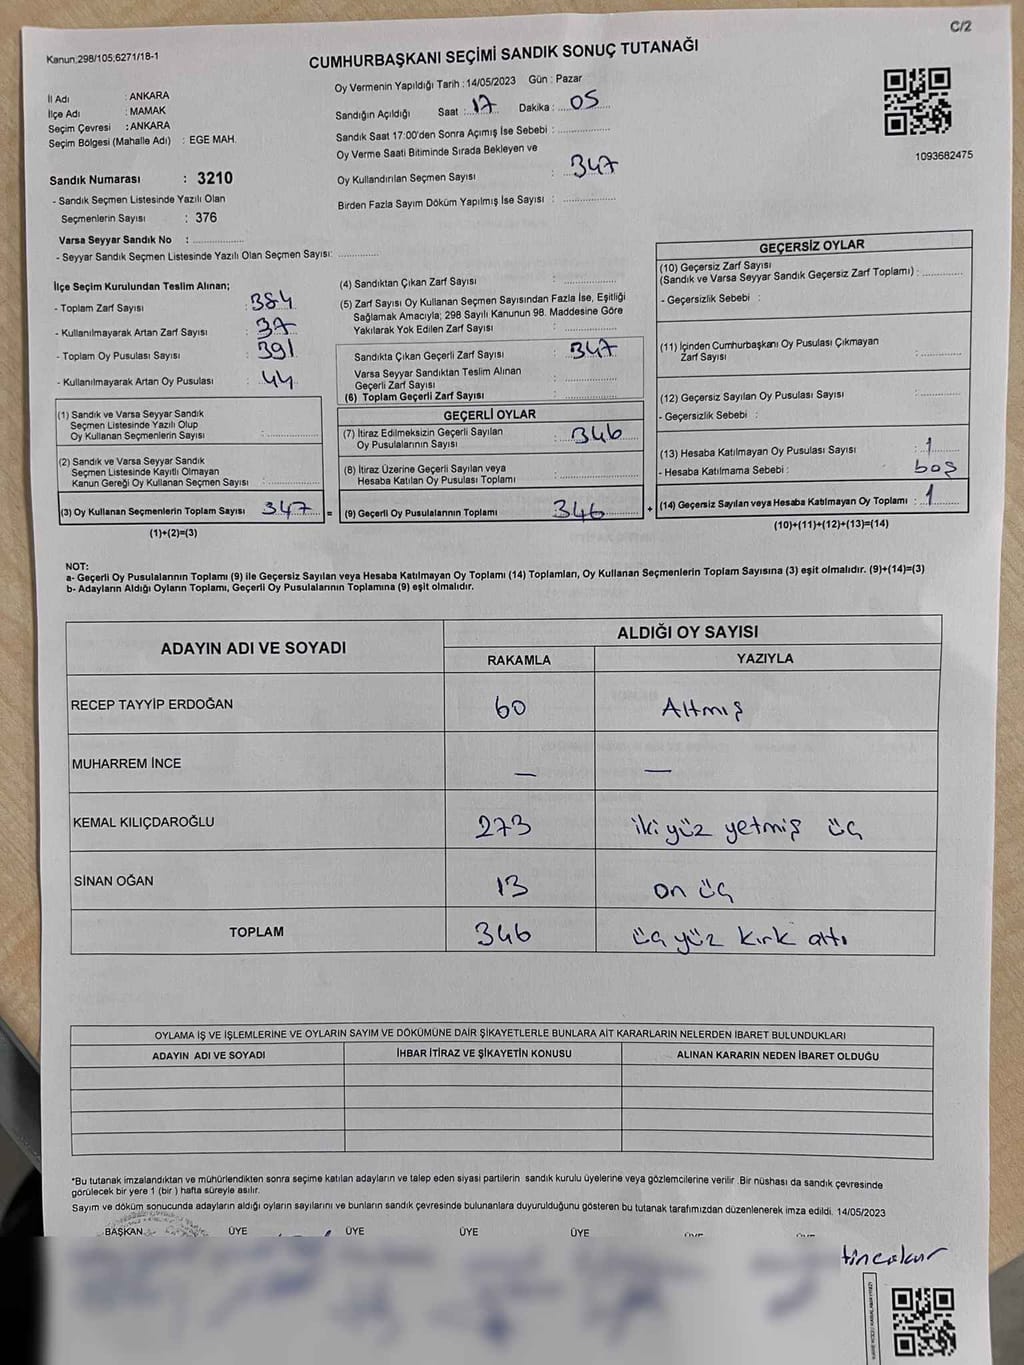 C/2
Kanun:298/105;6271/18-1
CUMHURBAŞKANI SEÇİMİ SANDIK SONUÇ TUTANAĞI
İl Adı : ANKARA
İlçe Adı : MAMAK
Seçim Çevresi : ANKARA
Seçim Bölgesi (Mahalle Adı) : EGE MAH.
Sandık Numarası : 3210
- Sandık Seçmen Listesinde Yazılı Olan
Seçmenlerin Sayısı : 376
Varsa Seyyar Sandık No : ..................
- Seyyar Sandık Seçmen Listesinde Yazılı Olan Seçmen Sayısı: ..............
Oy Vermenin Yapıldığı Tarih : 14/05/2023 Gün : Pazar
Sandığın Açıldığı Saat : 17 Dakika : 05
Sandık Saat 17:00'den Sonra Açımış İse Sebebi : ..................
Oy Verme Saati Bitiminde Sırada Bekleyen ve
Oy Kullandırılan Seçmen Sayısı : 347
Birden Fazla Sayım Döküm Yapılmış İse Sayısı : ..................
1093682475
İlçe Seçim Kurulundan Teslim Alınan;
- Toplam Zarf Sayısı : 384
- Kullanılmayarak Artan Zarf Sayısı : 37
- Toplam Oy Pusulası Sayısı : 391
- Kullanılmayarak Artan Oy Pusulası : 44
(1) Sandık ve Varsa Seyyar Sandık
Seçmen Listesinde Yazılı Olup
Oy Kullanan Seçmenlerin Sayısı : ..................
(2) Sandık ve Varsa Seyyar Sandık
Seçmen Listesinde Kayıtlı Olmayan
Kanun Gereği Oy Kullanan Seçmen Sayısı : ..................
(3) Oy Kullanan Seçmenlerin Toplam Sayısı 347 =
(1)+(2)=(3)
(4) Sandıktan Çıkan Zarf Sayısı : ..................
(5) Zarf Sayısı Oy Kullanan Seçmen Sayısından Fazla İse, Eşitliği
Sağlamak Amacıyla; 298 Sayılı Kanunun 98. Maddesine Göre
Yakılarak Yok Edilen Zarf Sayısı : ..................
Sandıkta Çıkan Geçerli Zarf Sayısı : 347
Varsa Seyyar Sandıktan Teslim Alınan
Geçerli Zarf Sayısı : ..................
(6) Toplam Geçerli Zarf Sayısı : ..................
GEÇERLİ OYLAR
(7) İtiraz Edilmeksizin Geçerli Sayılan
Oy Pusulalarının Sayısı : 346
(8) İtiraz Üzerine Geçerli Sayılan veya
Hesaba Katılan Oy Pusulası Toplamı : ..................
(9) Geçerli Oy Pusulalarının Toplamı 346 +
GEÇERSİZ OYLAR
(10) Geçersiz Zarf Sayısı
(Sandık ve Varsa Seyyar Sandık Geçersiz Zarf Toplamı) : ............
- Geçersizlik Sebebi :
(11) İçinden Cumhurbaşkanı Oy Pusulası Çıkmayan
Zarf Sayısı : ............
(12) Geçersiz Sayılan Oy Pusulası Sayısı : ............
- Geçersizlik Sebebi :
(13) Hesaba Katılmayan Oy Pusulası Sayısı : 1
- Hesaba Katılmama Sebebi : boş
(14) Geçersiz Sayılan veya Hesaba Katılmayan Oy Toplamı : 1
(10)+(11)+(12)+(13)=(14)
NOT:
a- Geçerli Oy Pusulalarının Toplamı (9) ile Geçersiz Sayılan veya Hesaba Katılmayan Oy Toplamı (14) Toplamları, Oy Kullanan Seçmenlerin Toplam Sayısına (3) eşit olmalıdır. (9)+(14)=(3)
b- Adayların Aldığı Oyların Toplamı, Geçerli Oy Pusulalarının Toplamına (9) eşit olmalıdır.
ADAYIN ADI VE SOYADI ALDIĞI OY SAYISI
RAKAMLA YAZIYLA
RECEP TAYYİP ERDOĞAN 60 Altmış
MUHARREM İNCE — —
KEMAL KILIÇDAROĞLU 273 iki yüz yetmiş üç
SİNAN OĞAN 13 on üç
TOPLAM 346 üç yüz kırk altı
OYLAMA İŞ VE İŞLEMLERİNE VE OYLARIN SAYIM VE DÖKÜMÜNE DAİR ŞİKAYETLERLE BUNLARA AİT KARARLARIN NELERDEN İBARET BULUNDUKLARI
ADAYIN ADI VE SOYADI İHBAR İTİRAZ VE ŞİKAYETİN KONUSU ALINAN KARARIN NEDEN İBARET OLDUĞU
*Bu tutanak imzalandıktan ve mühürlendikten sonra seçime katılan adayların ve talep eden siyasi partilerin sandık kurulu üyelerine veya gözlemcilerine verilir. Bir nüshası da sandık çevresinde
görülecek bir yere 1 (bir ) hafta süreyle asılır.
Sayım ve döküm sonucunda adayların aldığı oyların sayılarını ve bunların sandık çevresinde bulunanlara duyurulduğunu gösteren bu tutanak tarafımızdan düzenlenerek imza edildi. 14/05/2023
BAŞKAN ÜYE ÜYE ÜYE ÜYE